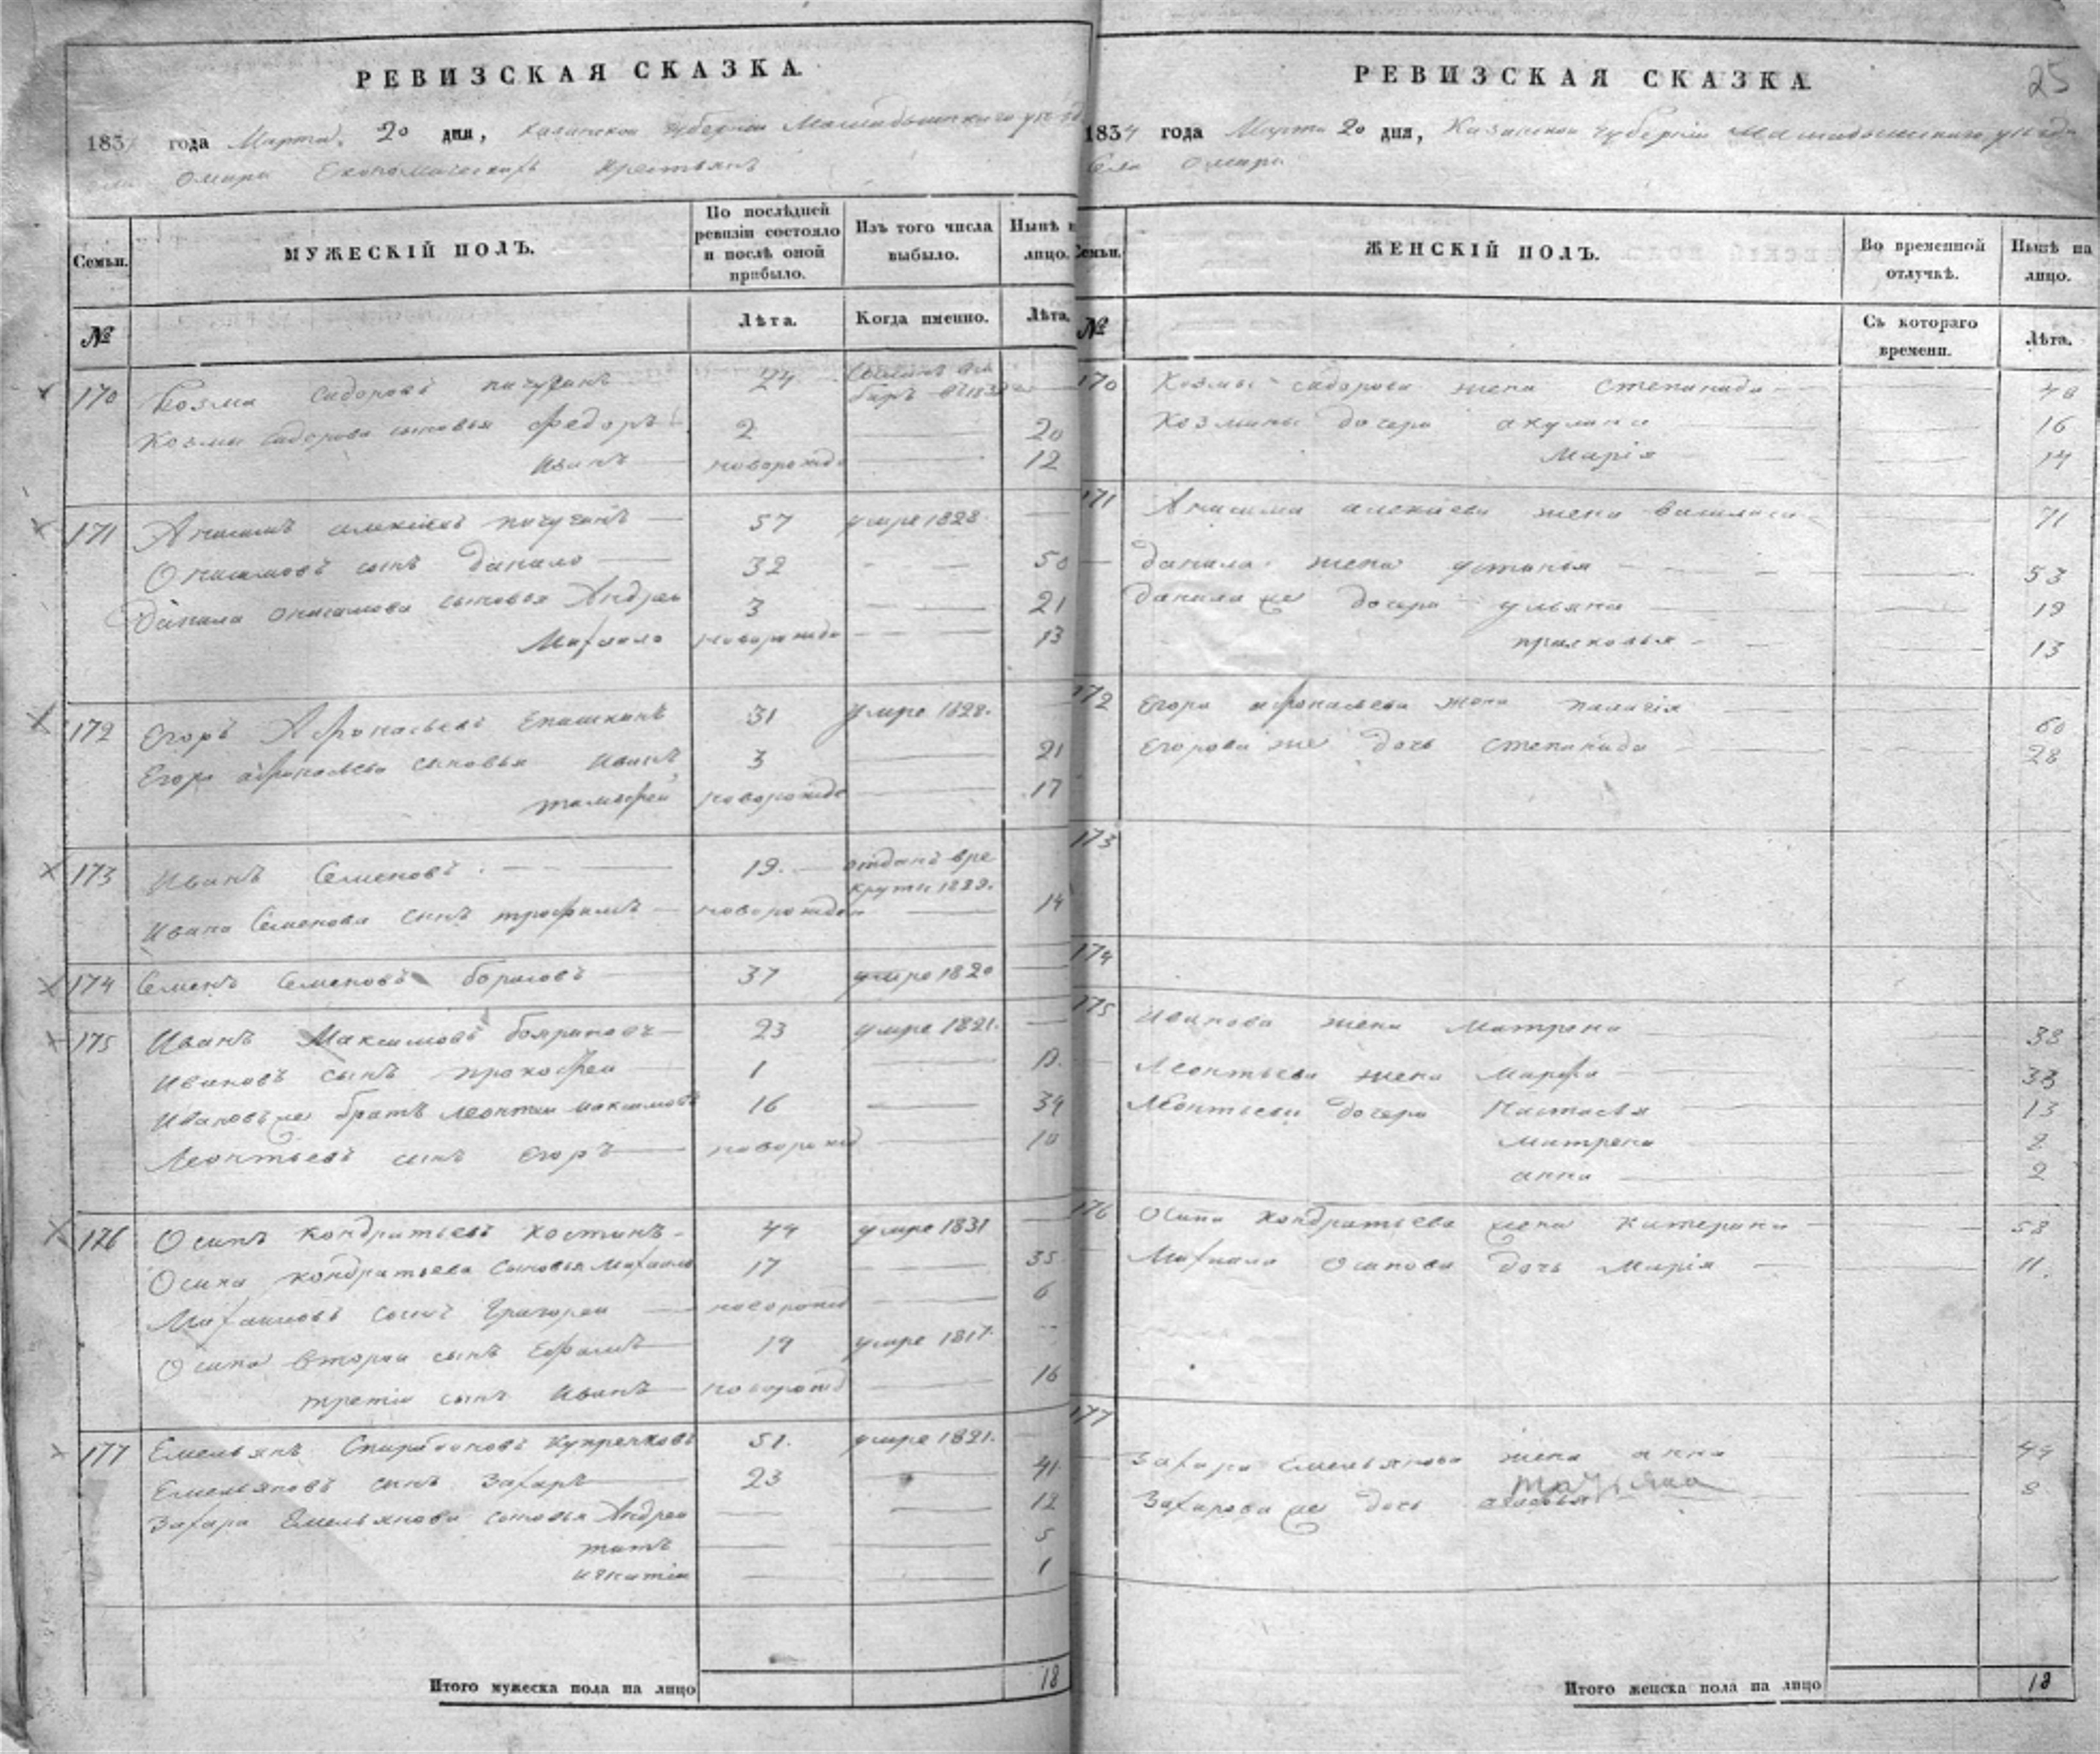 РЕВИЗСКАЯ СКАЗКА.
183 года Марта 20 дня, Казанской губерніи Мамадышскаго уезда
села Омари Економическихъ крестьянъ
Семьи.
МУЖЕСКІЙ ПОЛЪ.
По послѣдней ревизіи состояло и послѣ оной прибыло.
Изъ того числа выбыло.
Нынѣ н лицо.
№
Лѣта.
Когда именно.
Лѣта.
170 Козма Сидоровъ пичугинъ 24
Козмы Сидорова сыновья Федоръ 2 20
Иванъ новорожде 12
171 Анисимъ алексіевъ пичугинъ 57 умре 1828.
Онисимовъ сынъ Данило 32 50
Данила онисимова сыновья Андреи 3 21
Михаило новорожде 13
172 Егоръ Афонасьевъ Епишкинъ 31 умре 1828.
Егора афонасьева сыновья Иванъ 3 21
тимофеи новорожде 17
173 Иванъ Семеновъ. 19. отданъ вре
круты 1829.
Ивана Семенова сынъ трофимъ новорожден 14
174 Семенъ Семеновъ 37 умре 1820
175 Иванъ Максимовъ бояриновъ 23 умре 1821.
Ивановъ сынъ прокофеи 1
Ивановъ же братъ леонтии максимовъ 16 34
Леонтьевъ сынъ Егоръ новорожд 10
176 Осипъ Кондратьевъ Костинъ 44 умре 1831
Осипа кондратьева сыновья Михаило 17 35
Михаиловъ сынъ Григореи новорожд 6
Осипа второи сынъ Ефимъ 19 умре 1817.
третіи сынъ Иванъ новорожд 16
177 Емельянъ Спиридоновъ Купреяновъ 51. умре 1821.
Емельяновъ сынъ Захаръ 23 41
Захара Емельянова сыновья Андреи 12
титъ 5
игнатіи 1
Итого мужеска пола на лицо 18
25
РЕВИЗСКАЯ СКАЗКА.
1834 года Марта 20 дня, Казанской губерніи Мамадышскаго уезда
села Омари
Семьи.
ЖЕНСКІЙ ПОЛЪ.
Во временной отлучкѣ.
Нынѣ на лицо.
№
Съ котораго времени.
Лѣта.
170 Козмы сидорова жена Степанида 40
Козмины дочери акулина 16
Марія 14
171 Анисима алексіева жена василиса 71
Данила жена устинья 53
Данила же дочери ульяна 19
прасковья 13
172 Егора афонасьева жена палагія 60
Егорова же дочь степанида 28
173
174
175 Иванова жена Матрена 38
Леонтьева жена Марфа 33
Леонтьевы дочери Настасья 13
матрена 8
анна 2
176 Осипа кондратьева жена катерина 58
Михаила Осипова дочь Марія 11.
177 Захара Емельянова жена анна 44
татіяна
Захарова же дочь 8
Итого женска пола на лицо 18